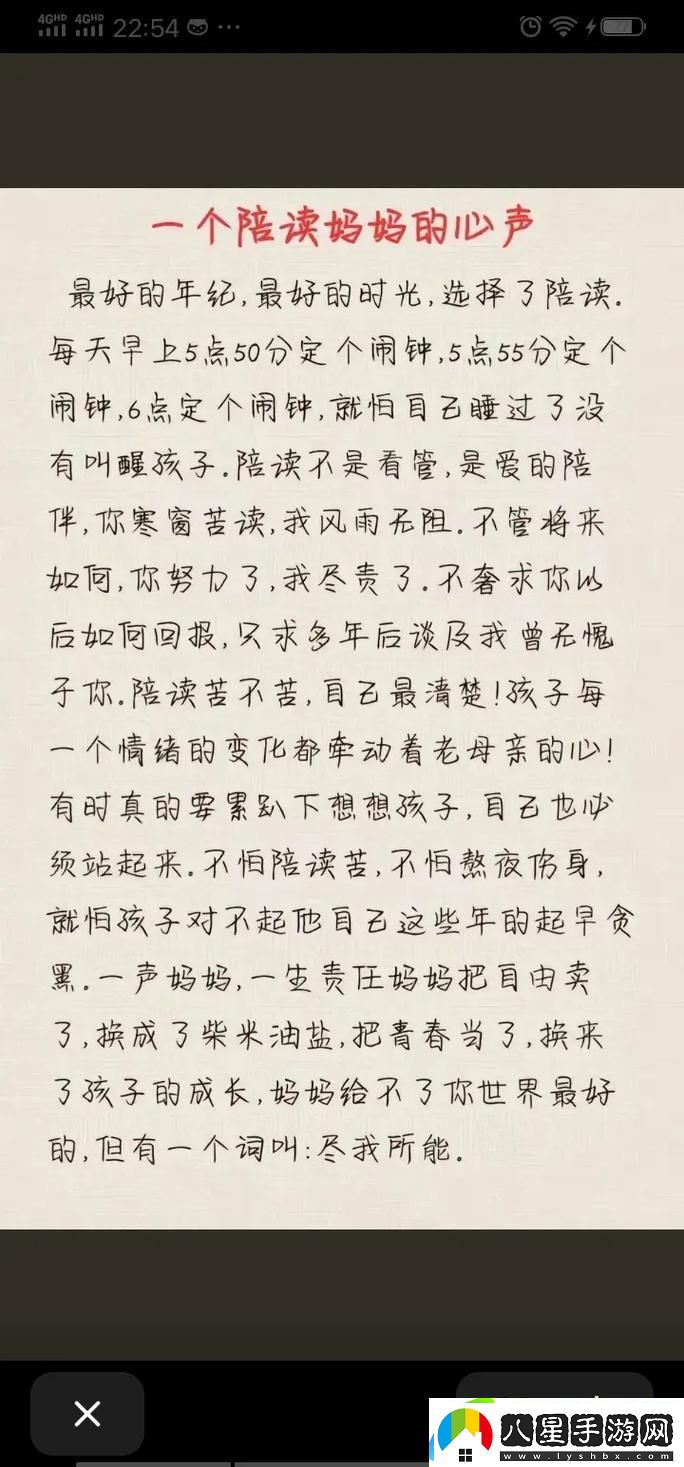 4GHD 4GHD 22:54 ...
一个陪读妈妈的心声
最好的年纪,最好的时光,选择了陪读.
每天早上5点50分定个闹钟,5点55分定个
闹钟,6点定个闹钟,就怕自己睡过了没
有叫醒孩子.陪读不是看管,是爱的陪
伴,你寒窗苦读,我风雨无阻.不管将来
如何,你努力了,我尽责了.不奢求你以
后如何回报,只求多年后谈及我曾无愧
于你.陪读苦不苦,自己最清楚!孩子每
一个情绪的变化都牵动着老母亲的心!
有时真的要累趴下想想孩子,自己也必
须站起来.不怕陪读苦,不怕熬夜伤身,
就怕孩子对不起他自己这些年的起早贪
黑.一声妈妈,一生责任妈妈把自由卖
了,换成了柴米油盐,把青春当了,换来
了孩子的成长,妈妈给不了你世界最好
的,但有一个词叫:尽我所能.
八星手游网
www.lyshbx.com